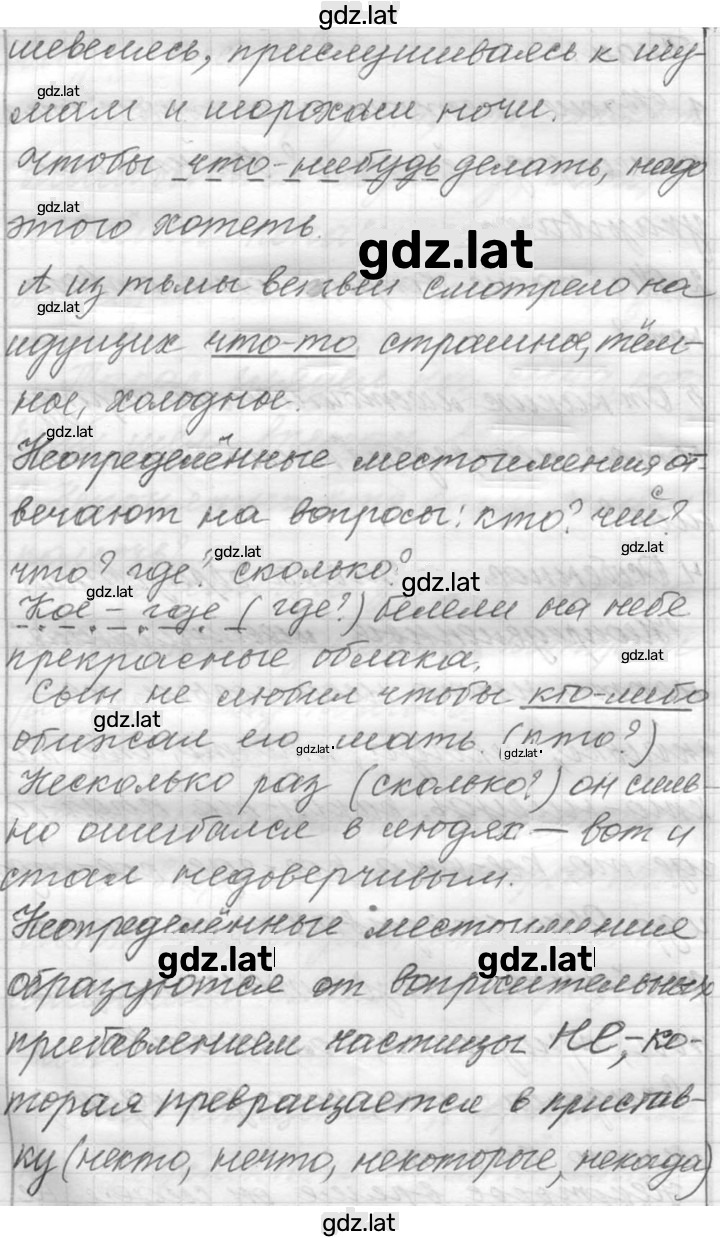 gdz.lat
шевелясь, прислушиваясь к шу-
gdz.lat
мам и шорохам ночи.
Чтобы что-нибудь делать, надо
gdz.lat
этого хотеть.
gdz.lat
А из тьмы ветвей смотрело на
gdz.lat
идущих что-то страшное, тём-
ное, холодное.
gdz.lat
Неопределённые местоимения от-
вечают на вопросы: кто? чей?
gdz.lat
gdz.lat
что? где? сколько?
gdz.lat
gdz.lat
Кое-где (где?) белели на небе
gdz.lat
прекрасные облака.
Сын не любил чтобы кто-либо
gdz.lat
обижал его мать. (кто?)
gdz.lat
gdz.lat
Несколько раз (сколько?) он силь-
но ошибался в людях — вот и
стал недоверчивым.
Неопределённые местоимения
gdz.lat
gdz.lat
образуются от вопросительных
прибавлением частицы НЕ, ко-
торая превращается в пристав-
ку (некто, нечто, некоторые, некада)
gdz.lat